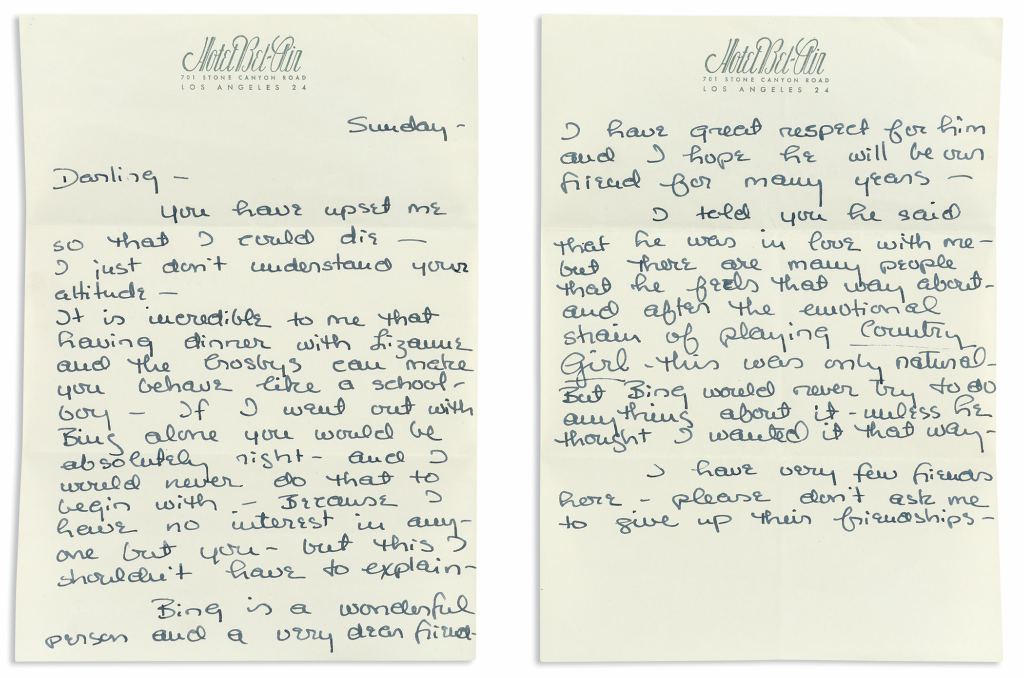 Hotel Bel-Air
701 STONE CANYON ROAD
LOS ANGELES 24
Sunday -
Darling -
You have upset me
so that I could die -
I just don't understand your
attitude -
It is incredible to me that
having dinner with Lizanne
and the Crosbys can make
you behave like a school-
boy - If I went out with
Bing alone you would be
absolutely right - and I
would never do that to
begin with - Because I
have no interest in any-
one but you - but this I
shouldn't have to explain -
Bing is a wonderful
person and a very dear friend -
Hotel Bel-Air
701 STONE CANYON ROAD
LOS ANGELES 24
I have great respect for him
and I hope he will be our
friend for many years -
I told you he said
that he was in love with me -
but there are many people
that he feels that way about -
and after the emotional
strain of playing Country
Girl - this was only natural -
But Bing would never try to do
anything about it - unless he
thought I wanted it that way -
I have very few friends
here - please don't ask me
to give up their friendships -